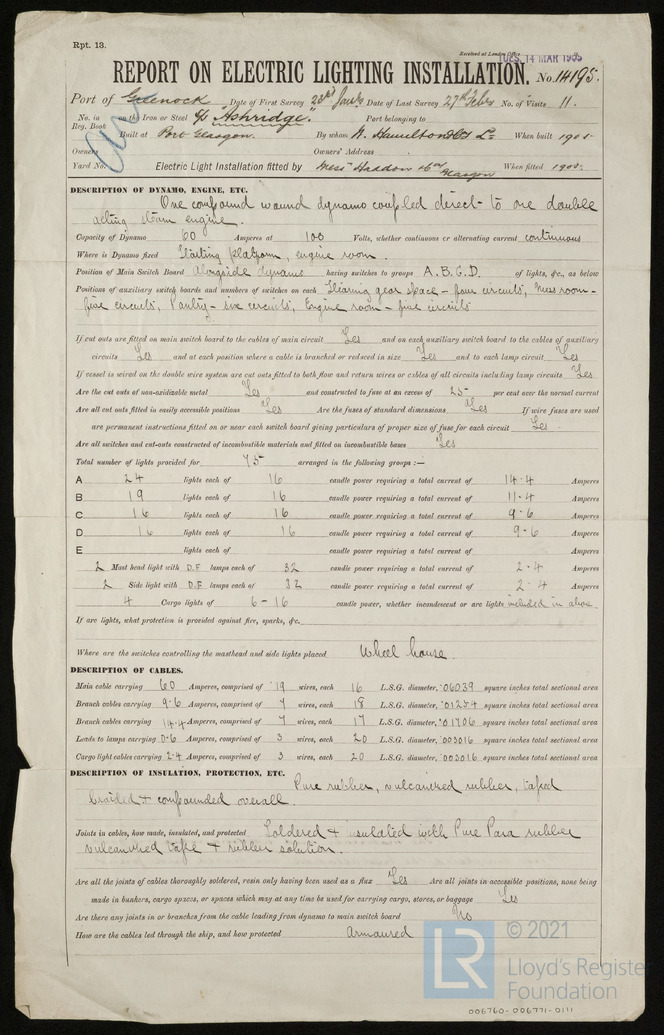 Rpt. 13.
Received at London Office
TUES. 14 MAR 1905
REPORT ON ELECTRIC LIGHTING INSTALLATION. No. 14195.
Port of Greenock Date of First Survey 23rd Jany Date of Last Survey 27th Feby No. of Visits 11.
No. in Reg. Book on the Iron or Steel S/S "Ashridge." Port belonging to
Built at Port Glasgow. By whom W. Hamilton & Co Ld When built 1905
Owners Owners' Address
Yard No. Electric Light Installation fitted by Messrs Haddon & Co Glasgow When fitted 1905.
DESCRIPTION OF DYNAMO, ENGINE, ETC.
One compound wound dynamo coupled direct to one double
acting steam engine.
Capacity of Dynamo 60 Amperes at 100 Volts, whether continuous or alternating current continuous
Where is Dynamo fixed Starting platform, engine room.
Position of Main Switch Board alongside dynamo having switches to groups A.B.C.D. of lights, &c., as below
Positions of auxiliary switch boards and numbers of switches on each Stearing gear space - four circuits, Mess room -
five circuits, Pantry - six circuits, Engine room - five circuits
If cut outs are fitted on main switch board to the cables of main circuit Yes and on each auxiliary switch board to the cables of auxiliary
circuits Yes and at each position where a cable is branched or reduced in size Yes and to each lamp circuit Yes
If vessel is wired on the double wire system are cut outs fitted to both flow and return wires or cables of all circuits including lamp circuits Yes
Are the cut outs of non-oxidizable metal Yes and constructed to fuse at an excess of 25 per cent over the normal current
Are all cut outs fitted in easily accessible positions Yes Are the fuses of standard dimensions Yes If wire fuses are used
are permanent instructions fitted on or near each switch board giving particulars of proper size of fuse for each circuit Yes.
Are all switches and cut-outs constructed of incombustible materials and fitted on incombustible bases Yes
Total number of lights provided for 75 arranged in the following groups :—
A 24 lights each of 16 candle power requiring a total current of 14.4 Amperes
B 19 lights each of 16 candle power requiring a total current of 11.4 Amperes
C 16 lights each of 16 candle power requiring a total current of 9.6 Amperes
D 16 lights each of 16 candle power requiring a total current of 9.6 Amperes
E lights each of candle power requiring a total current of Amperes
2 Mast head light with D.F lamps each of 32 candle power requiring a total current of 2.4 Amperes
2 Side light with D.F lamps each of 32 candle power requiring a total current of 2.4 Amperes
4 Cargo lights of 6-16 candle power, whether incandescent or arc lights included in above.
If arc lights, what protection is provided against fire, sparks, &c.
Where are the switches controlling the masthead and side lights placed Wheel house.
DESCRIPTION OF CABLES.
Main cable carrying 60 Amperes, comprised of 19 wires, each 16 L.S.G. diameter, .06039 square inches total sectional area
Branch cables carrying 9.6 Amperes, comprised of 7 wires, each 18 L.S.G. diameter, .01254 square inches total sectional area
Branch cables carrying 14.4 Amperes, comprised of 7 wires, each 17 L.S.G. diameter, .01706 square inches total sectional area
Leads to lamps carrying 0.6 Amperes, comprised of 3 wires, each 20 L.S.G. diameter, .003016 square inches total sectional area
Cargo light cables carrying 2.4 Amperes, comprised of 3 wires, each 20 L.S.G. diameter, .003016 square inches total sectional area
DESCRIPTION OF INSULATION, PROTECTION, ETC.
Pure rubber, vulcanized rubber, taped
braided & compounded overall.
Joints in cables, how made, insulated, and protected Soldered & insulated with Pure Para rubber
vulcanized tape & rubber solution.
Are all the joints of cables thoroughly soldered, resin only having been used as a flux Yes Are all joints in accessible positions, none being
made in bunkers, cargo spaces, or spaces which may at any time be used for carrying cargo, stores, or baggage Yes
Are there any joints in or branches from the cable leading from dynamo to main switch board No
How are the cables led through the ship, and how protected Armoured
LR
© 2021
Lloyd's Register
Foundation
006760-006771-0111